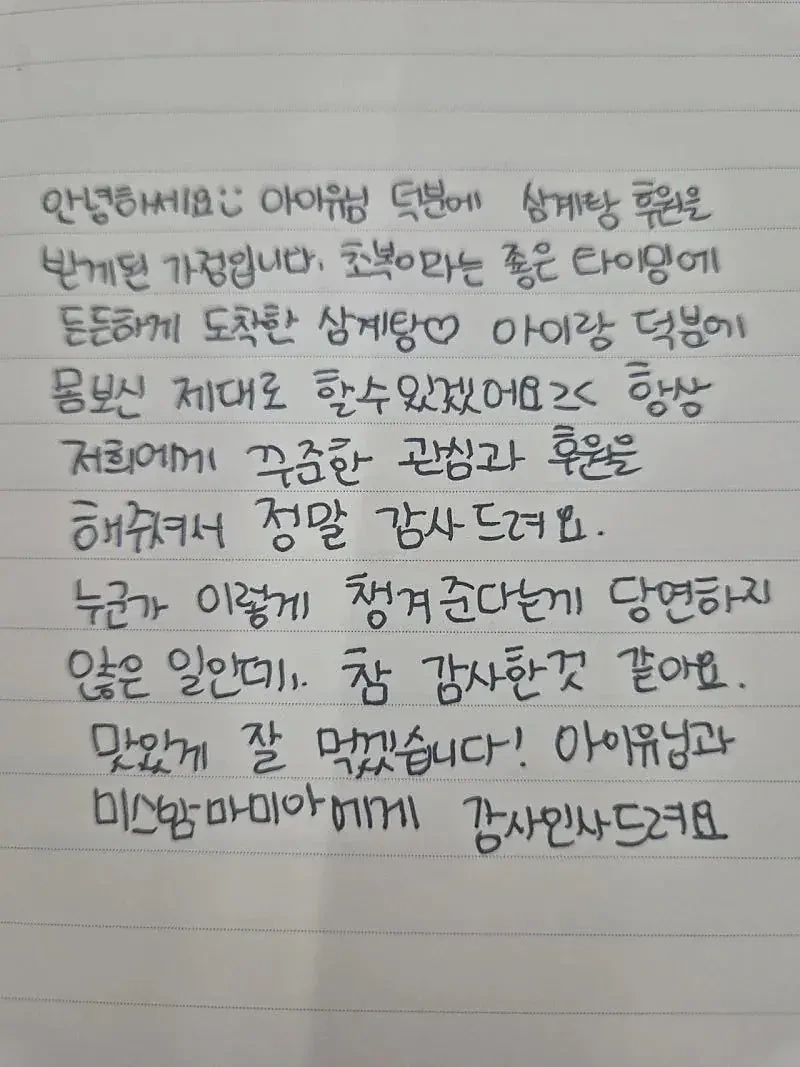 안녕하세요:) 아이유님 덕분에 삼계탕 후원을
받게된 가정입니다. 초복이라는 좋은 타이밍에
든든하게 도착한 삼계탕♡ 아이랑 덕분에
몸보신 제대로 할수있겠어요><  항상
저희에게 꾸준한 관심과 후원을
해줘서 정말 감사드려요.
누군가 이렇게 챙겨준다는게 당연하지
않은 일인데.. 참 감사한것 같아요.
맛있게 잘 먹겠습니다! 아이유님과
미스맘마미아에게 감사인사드려요